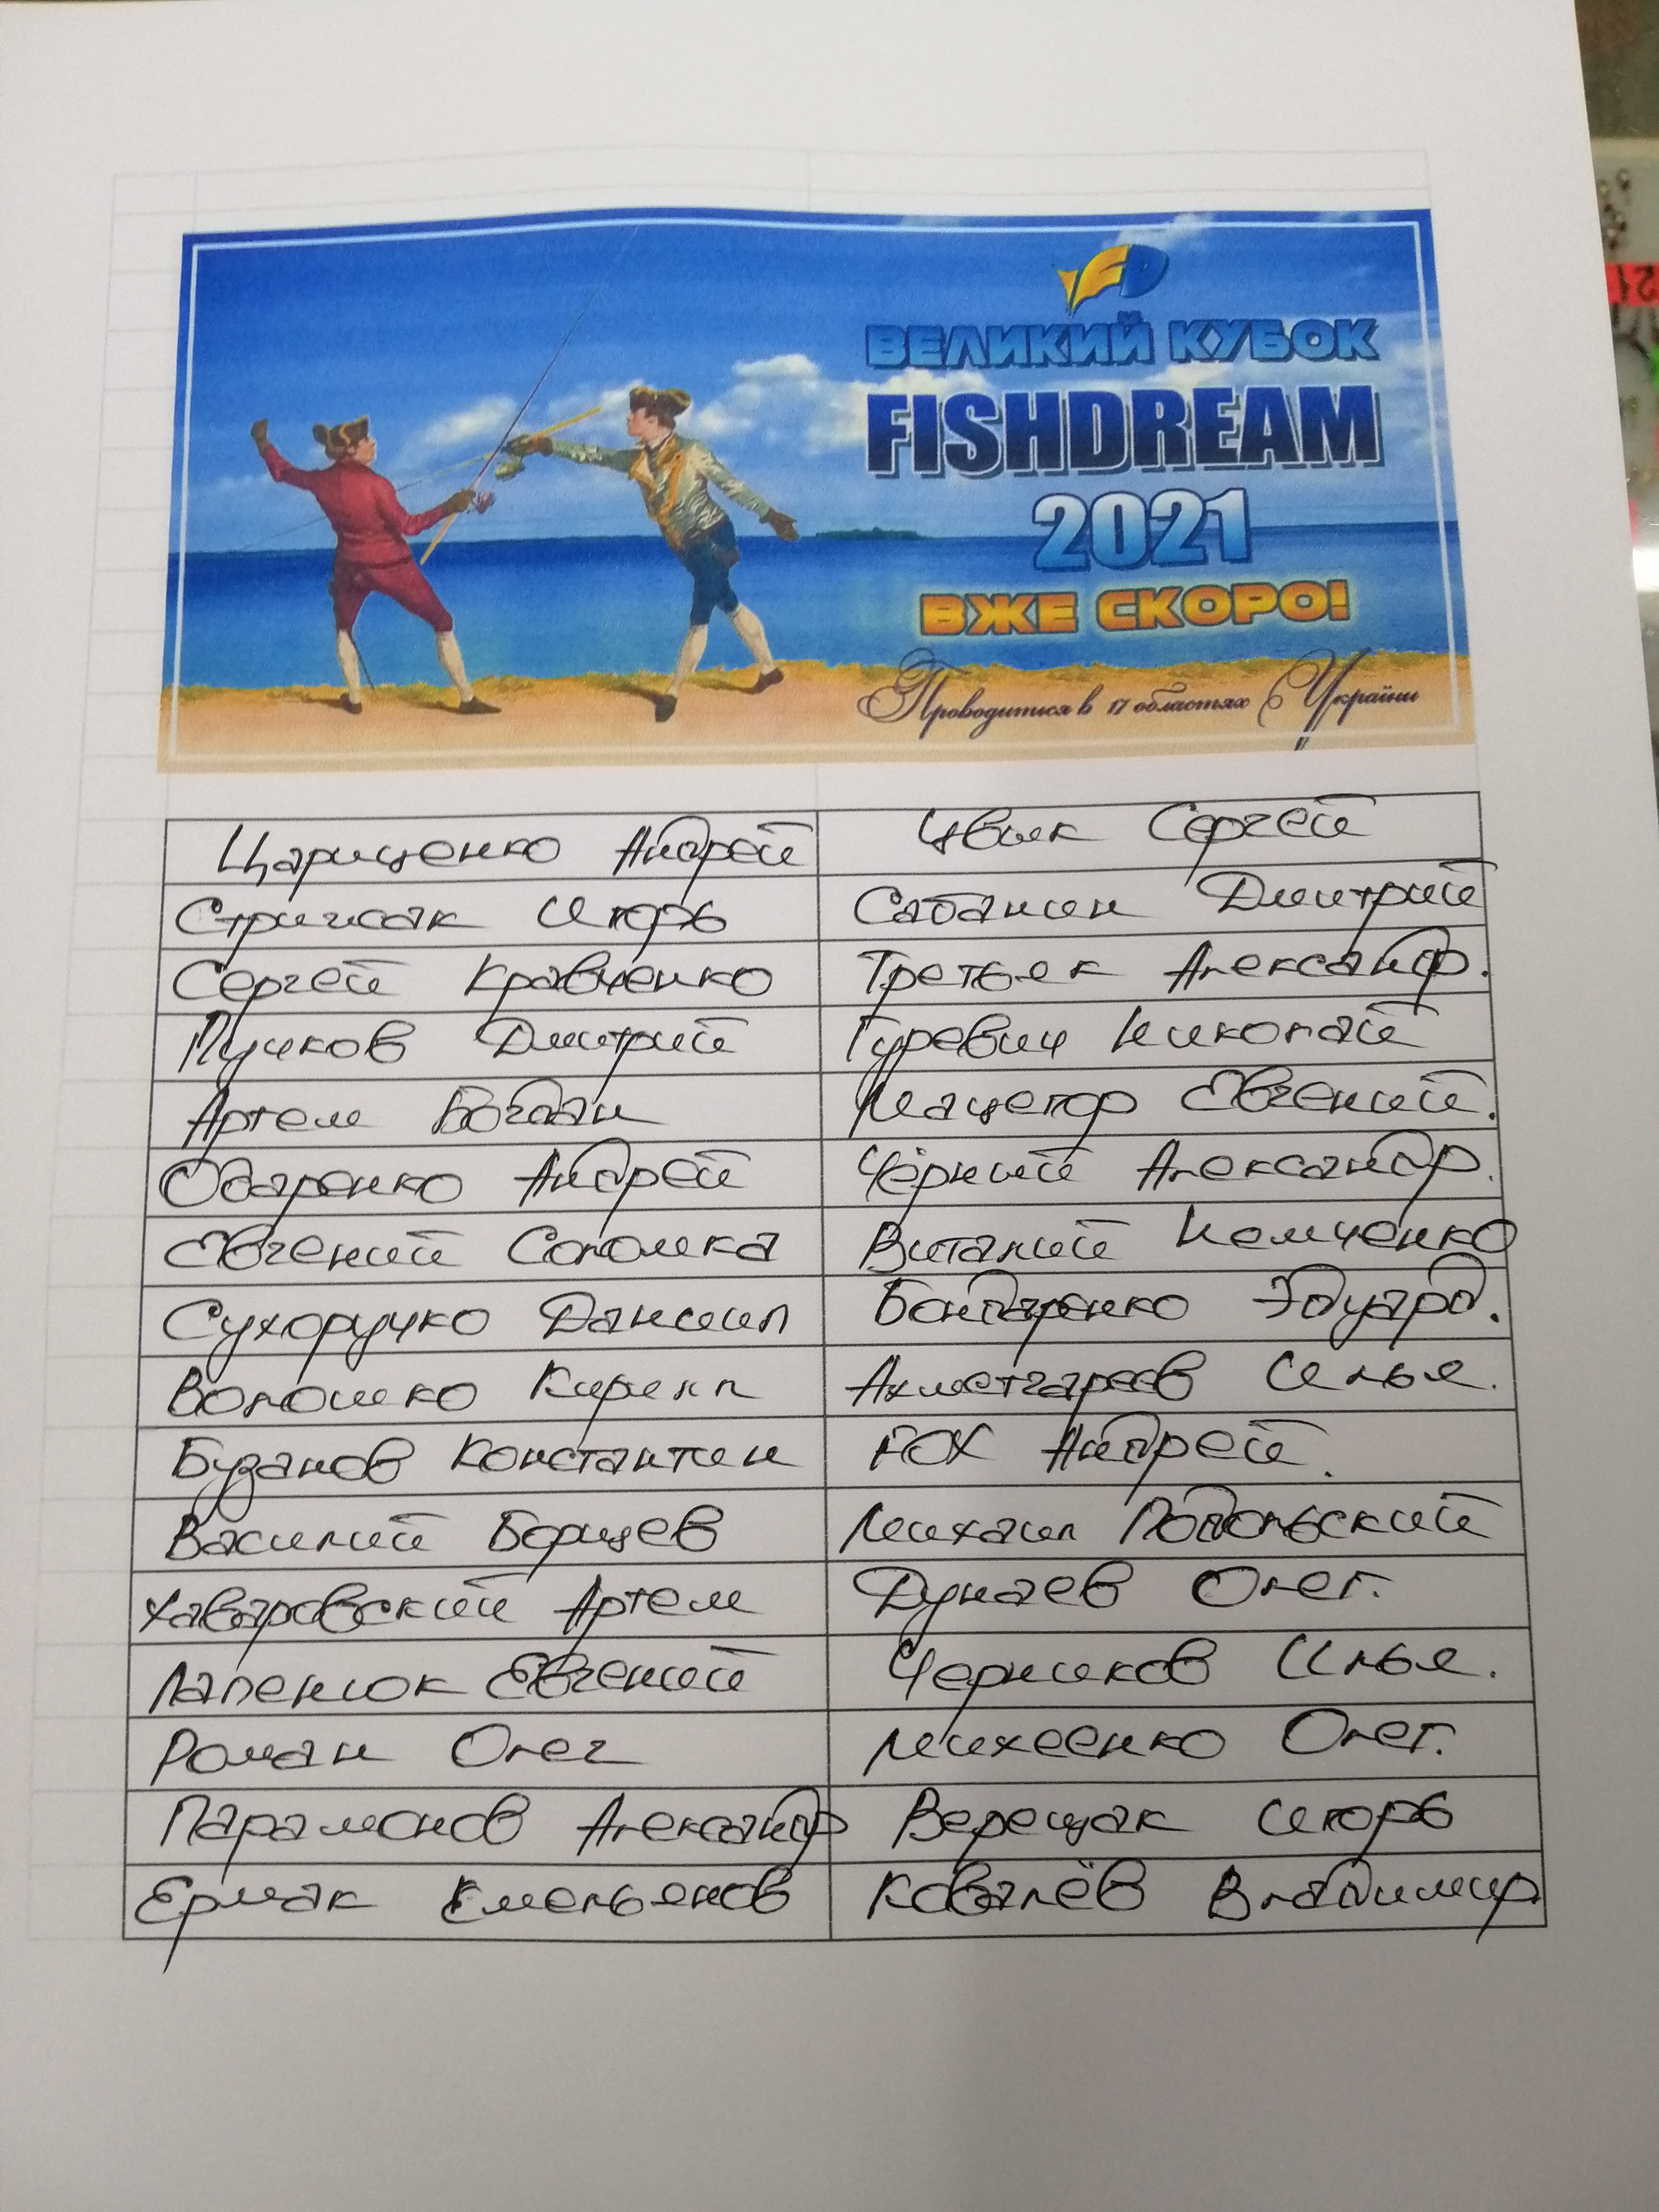 FD
ВЕЛИКИЙ КУБОК
FISHDREAM
2021
ВЖЕ СКОРО!
Проводитися в 17 областях України
Царищенко Андрей Цвик Сергей
Стрижак Игорь Сабанин Дмитрий
Сергей Кравченко Третьяк Александр.
Пучков Дмитрий Гуревич Николай
Артем Богдан Мацегор Евгений.
Одаренко Андрей Чёрний Александр.
Евгений Соломка Виталий Немченко
Сухоручко Даниил Бондаренко Эдуард.
Волошко Кирилл Ахметгареев Илья.
Бузанов Константин Андрей.
Василий Борщев Михаил Подольский
Хаваровский Артем Дунаев Олег.
Лапенюк Евгений Черников Илья.
Роман Олег Михеенко Олег.
Парамонов Александр Верещак Игорь
Ермак Емельянов Ковалёв Владимир